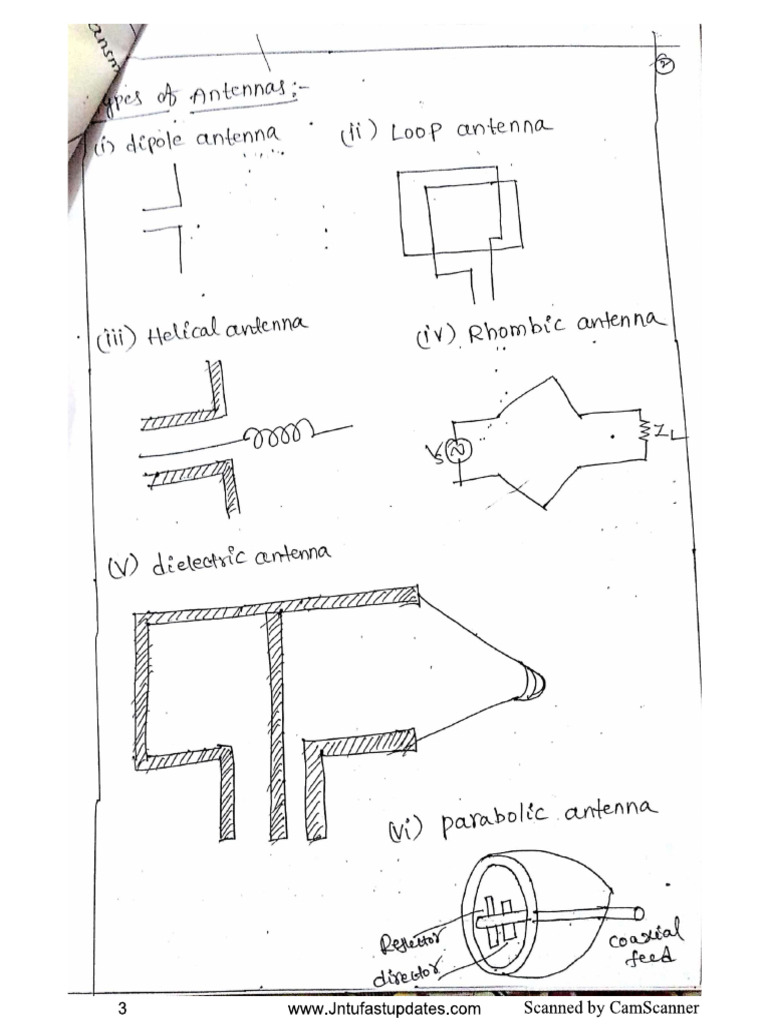 ansm
②
Types of Antennas:-
(i) dipole antenna
(ii) Loop antenna
(iii) Helical antenna
(iv) Rhombic antenna
Vs
ZL
(V) dielectric antenna
(vi) parabolic antenna
Reflector
director
coaxial
feed
3
www.Jntufastupdates.com
Scanned by CamScanner